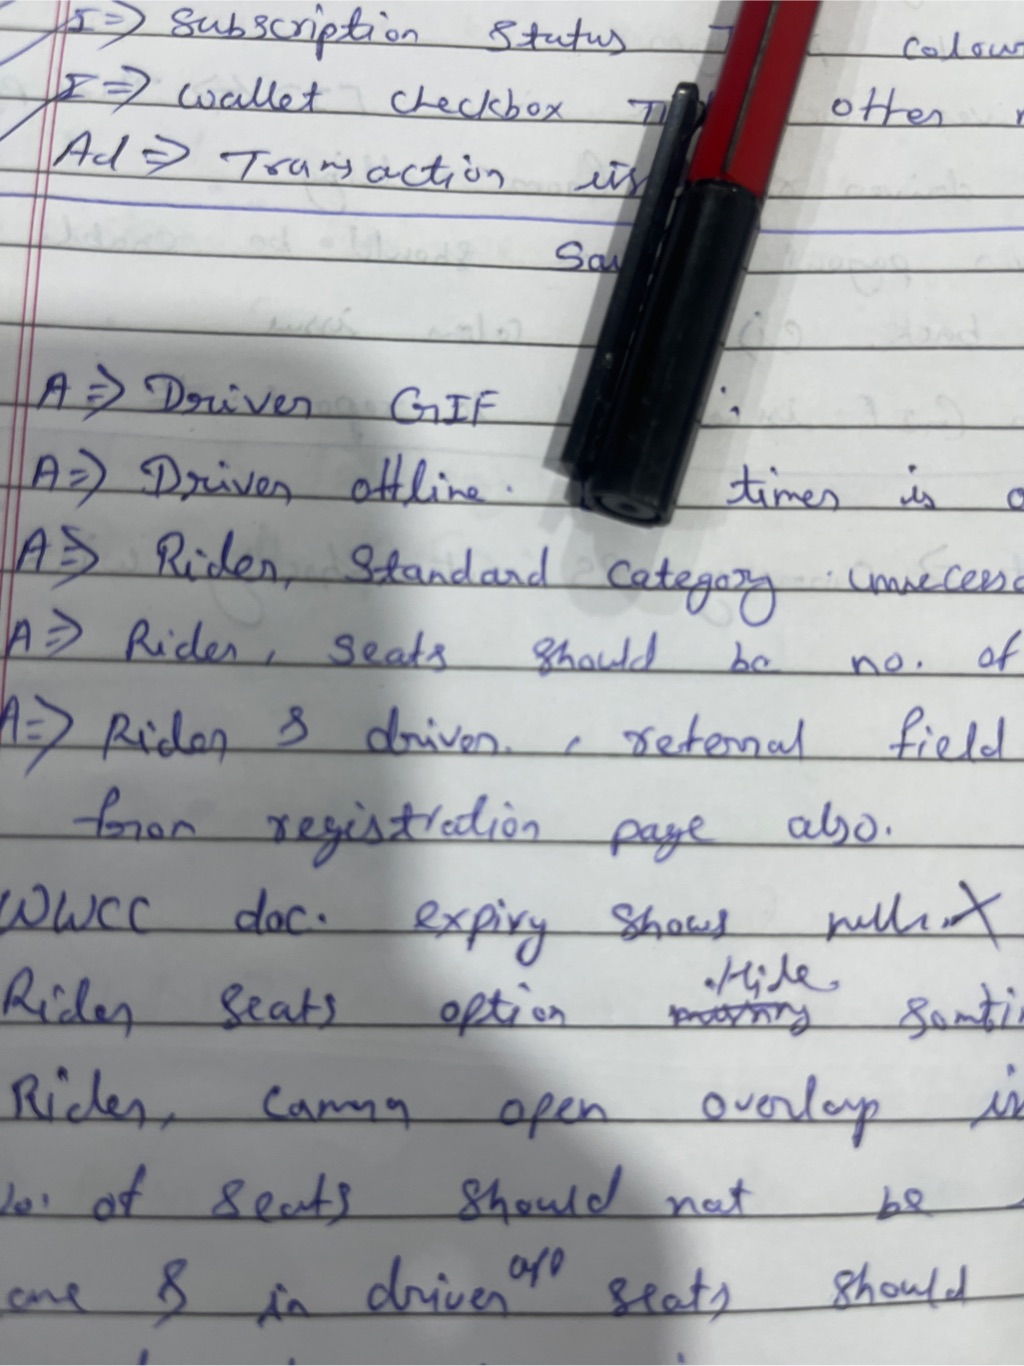 I => Subscription Status colour
I => wallet checkbox otter
Ad => Transaction
A => Driver GIF
A => Driver offline. times is
A => Rider, Standard Category
A => Rider, seats should be no. of
A => Rider & driver. referral field
from registration page also.
WWCC doc. expiry shows null. X
Rider seats option Hide
Rider, open overlap in
of seats should not be
one & in driver app seats should